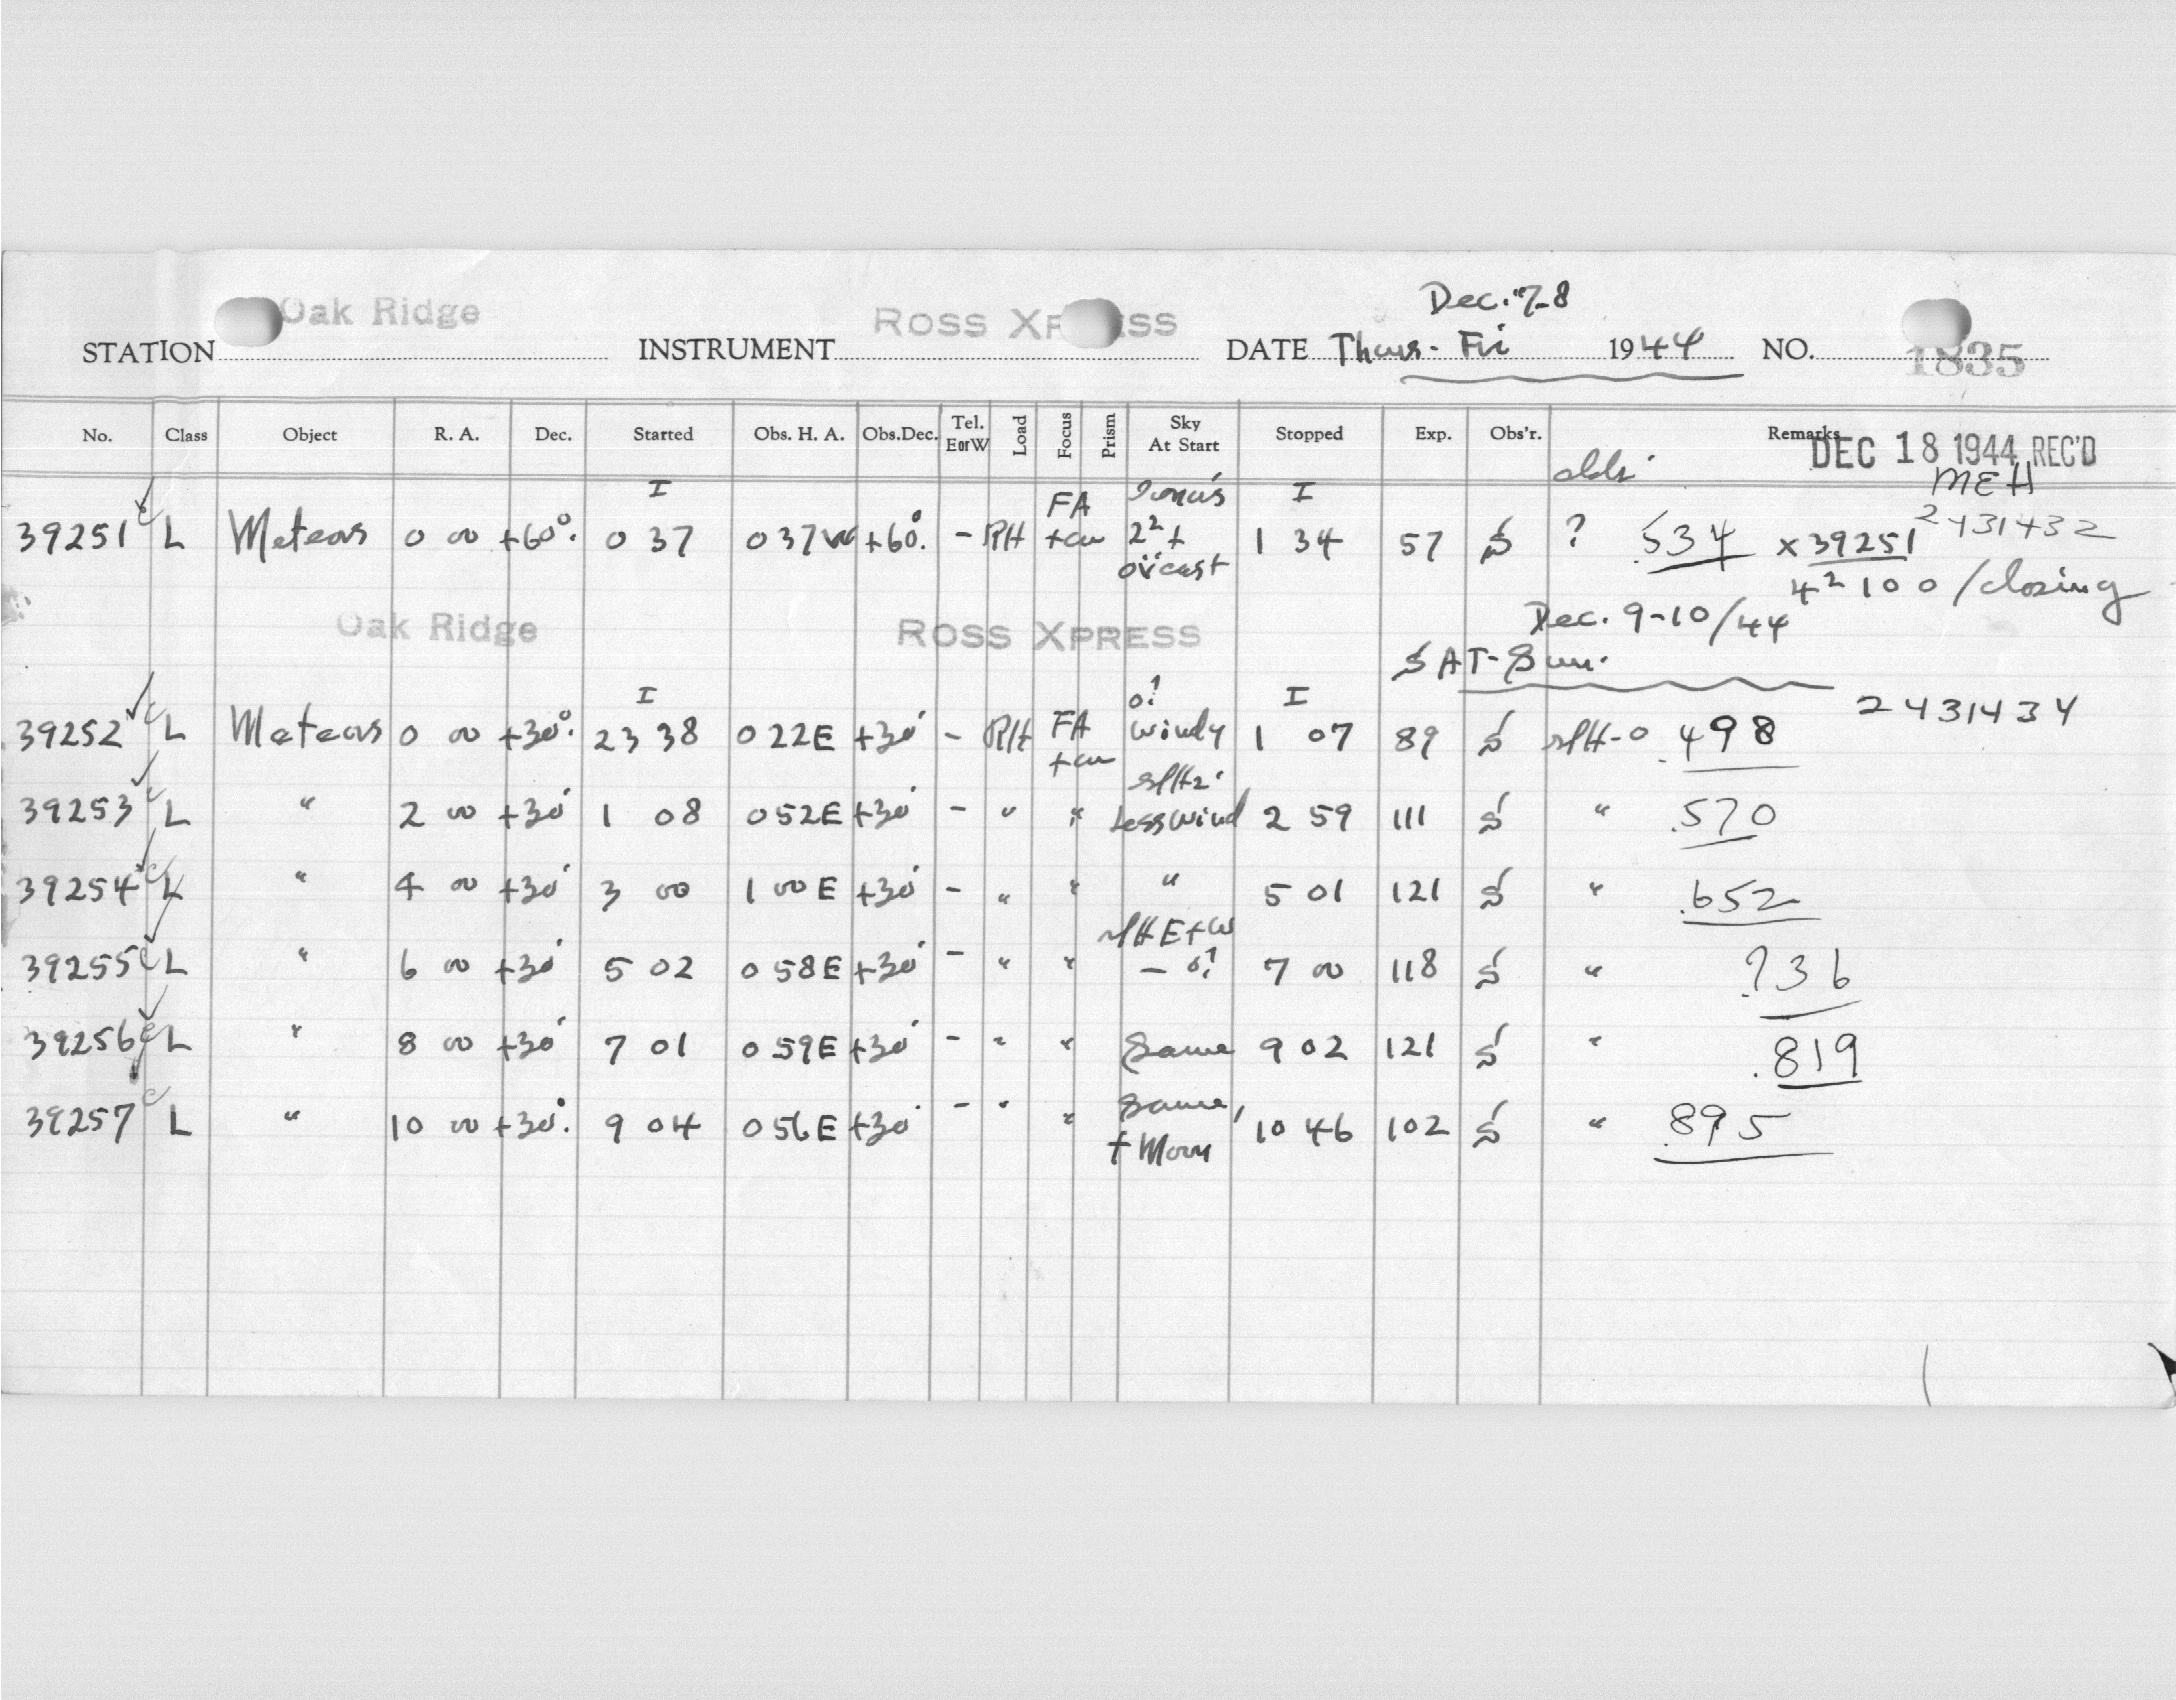 Oak Ridge ROSS XPRESS Dec. 7-8
STATION INSTRUMENT DATE Thurs - Fri 1944 NO. 1835
No. Class Object R. A. Dec. Started Obs. H. A. Obs.Dec. Tel. E or W Load Focus Prism Sky At Start Stopped Exp. Obs'r. Remarks
DEC 18 1944 REC'D
MEH
39251 L Meteors 0 00 +60°. I 0 37 0 37W +60°. - RH FA + cw 2² + ov'cast I 1 34 57 ? .534 x 39251 2431432
4² 100 / closing
Oak Ridge ROSS XPRESS Dec. 9-10/44
SAT-Sun.
39252 L Meteors 0 00 +30°. I 23 38 0 22E +30° - RH FA + cw 0! windy I 1 07 89 S .498 2431434
39253 L " 2 00 +30° 1 08 0 52E +30° - " " Less wind 2 59 111 S " .570
39254 L " 4 00 +30° 3 00 1 00E +30° - " " " 5 01 121 S " .652
39255 L " 6 00 +30° 5 02 0 58E +30° - " " E + W - 0! 7 00 118 S " .736
39256 L " 8 00 +30° 7 01 0 59E +30° - " " Same 9 02 121 S " .819
39257 L " 10 00 +30°. 9 04 0 56E +30° - " " Same, + Moon 10 46 102 S " .895